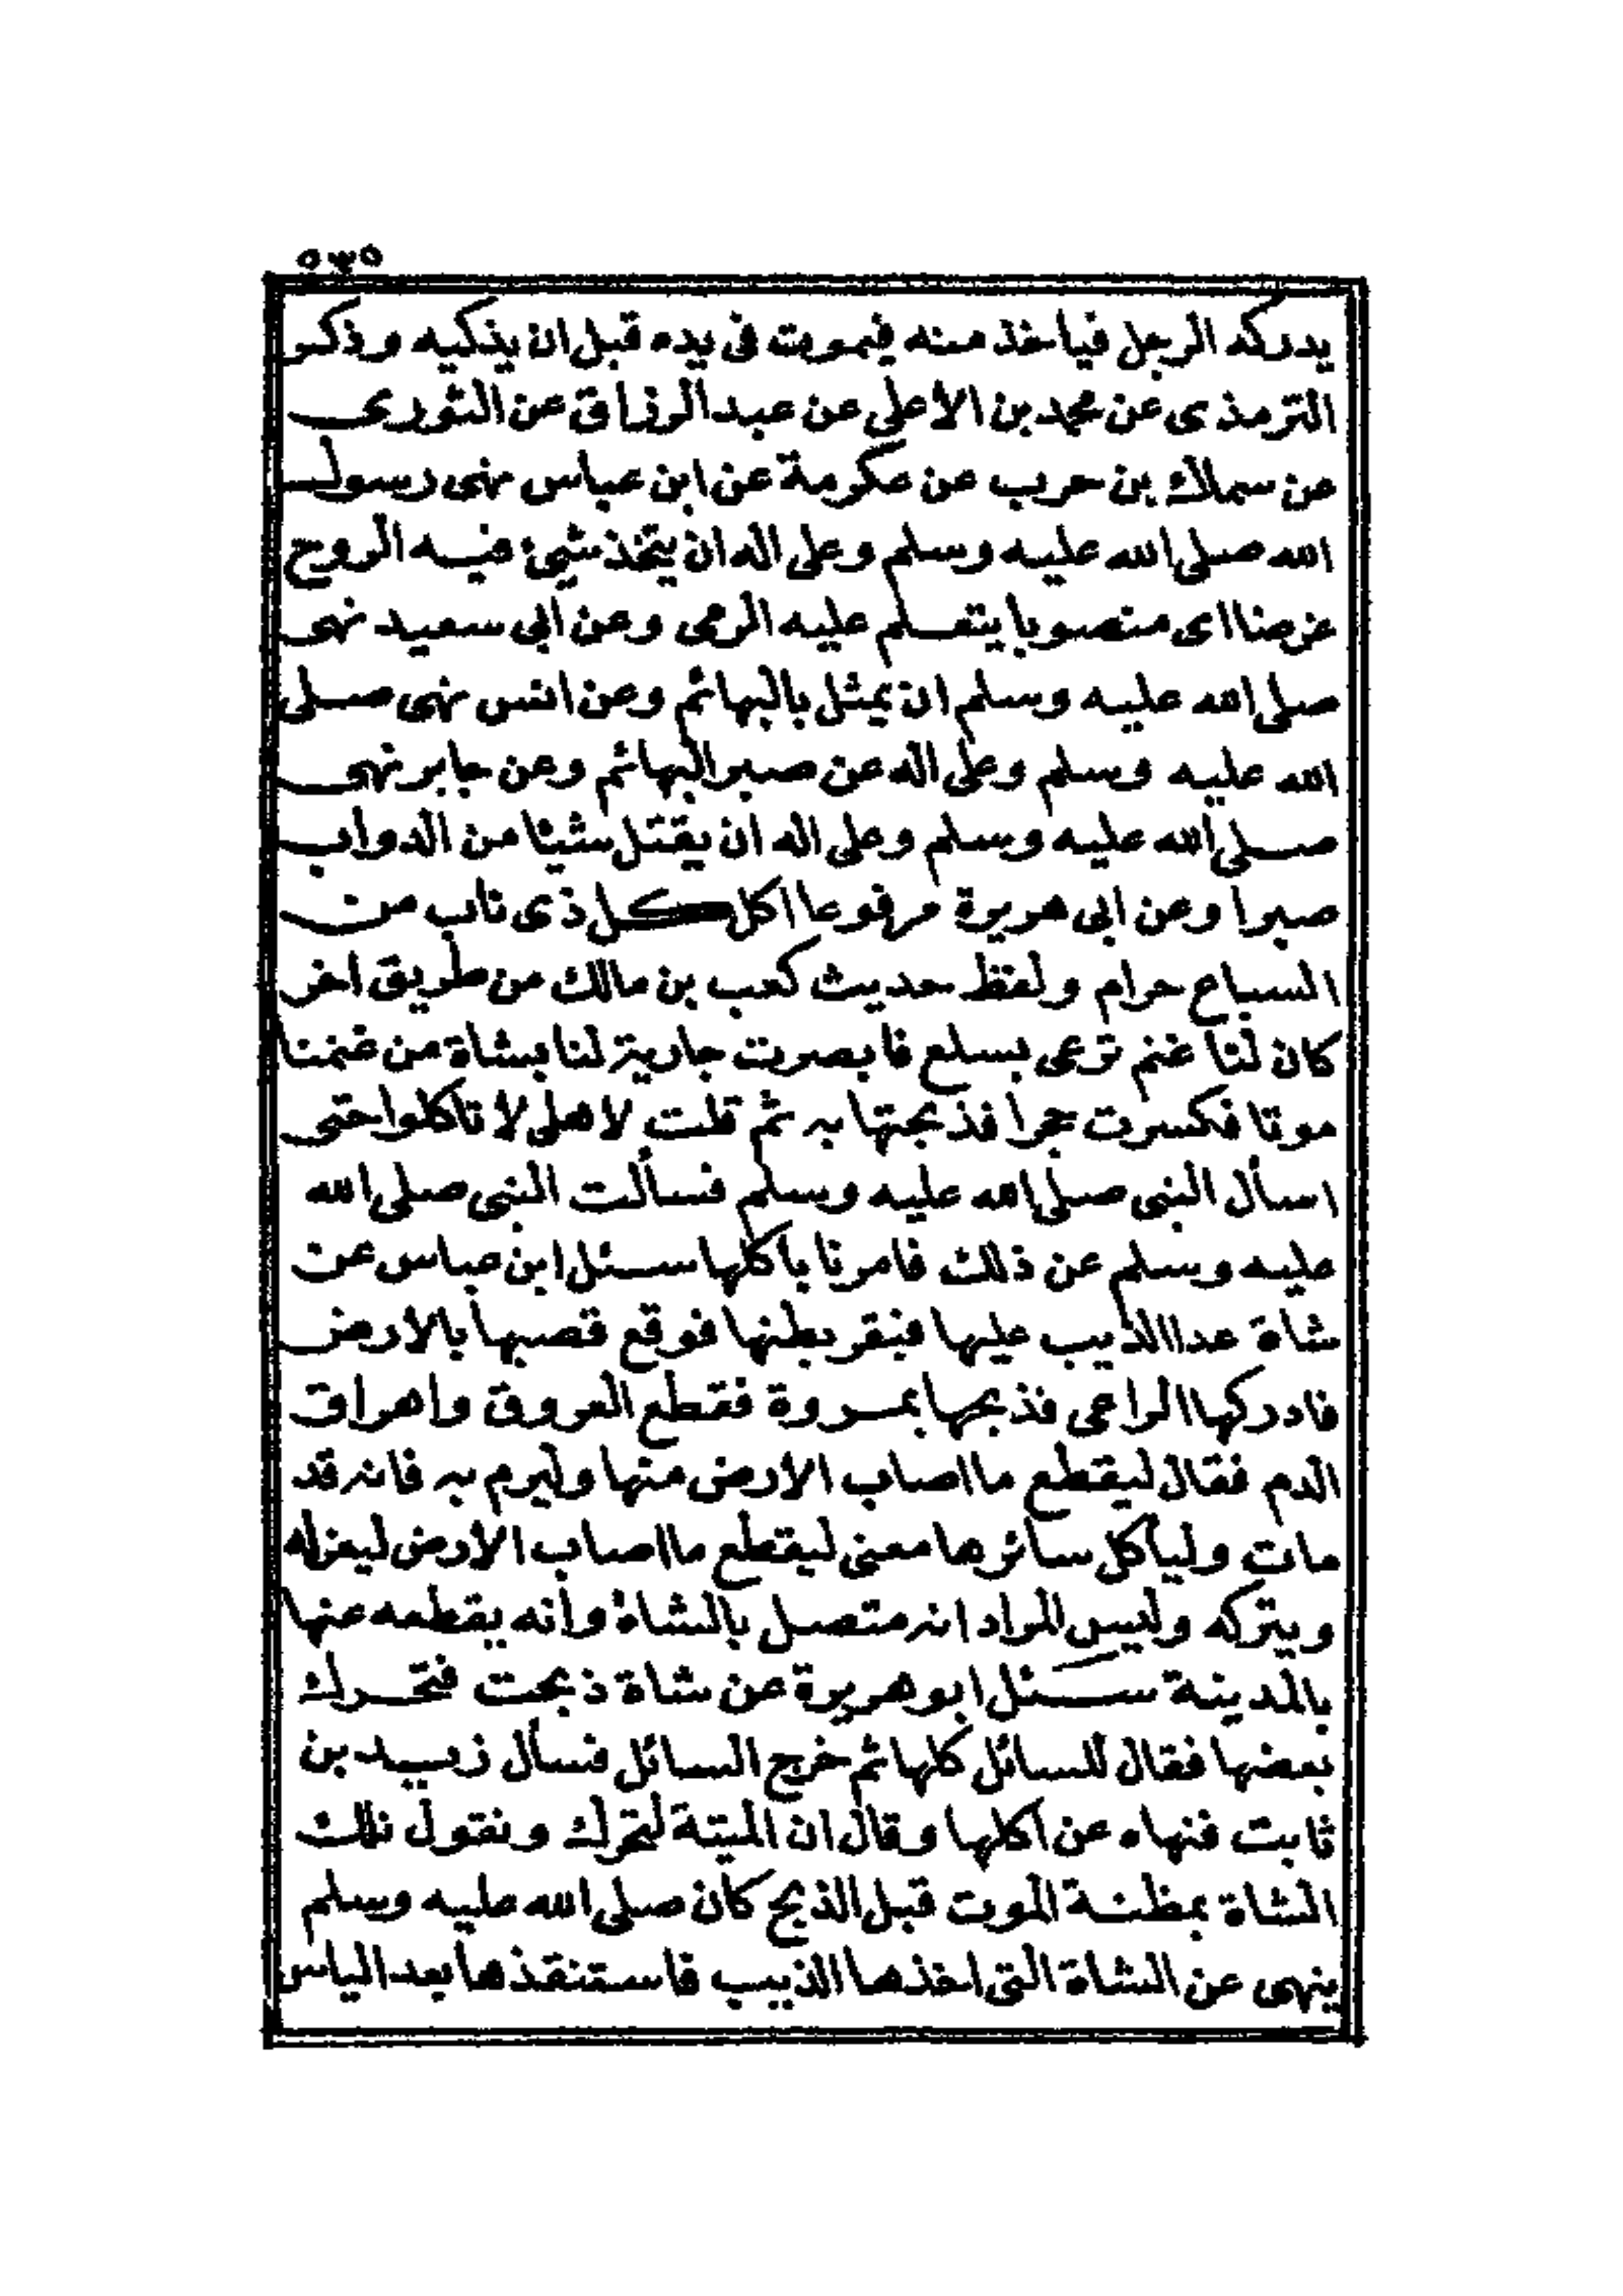 ٥٣٥
يدركه الرجل فيأخذ منه فيموت فى يده قبل ان يذكيه وذكر
الترمذى عن محمد بن الأعلى عن عبد الرزاق عن الثورى
عن سماك بن حرب عن عكرمة عن ابن عباس نهى رسول
الله صلى الله عليه وسلم وعلى اله ان يتخذ شىء فيه الروح
غرضا اى منصوبا يتعلم عليه الرمى وعن ابى سعيد نهى
صلى الله عليه وسلم ان يمثل بالبهائم وعن انس نهى صلى
الله عليه وسلم وعلى اله عن صبر البهائم وعن جابر نهى
صلى الله عليه وسلم وعلى اله ان يقتل شيئا من الدواب
صبرا وعن ابى هريرة مرفوعا اكل كل ذى ناب من
السباع حرام ولفظ حديث كعب بن مالك من طريق اخر
كان لنا غنم ترعى بسلع فابصرت جارية لنا بشاة من غنمنا
موتا فكسرت حجرا فذبحتها به ثم قلت لاهلى لا تاكلوا حتى
اسأل النبى صلى الله عليه وسلم فسألت النبى صلى الله
عليه وسلم عن ذلك فامرنا باكلها سئل ابن عباس عن
شاة عدا الذيب عليها فبقر بطنها فوقع قصبها بالارض
فادركها الراعى فذبحها بمروة فقطع العروق واهراق
الدم فقال ليقطع ما اصاب الارض منها وليرم به فانه قد
مات وليأكل سائرها معنى ليقطع ما اصاب الارض ليعزله
ويتركه وليس المراد انه متصل بالشاة وانه يقطعه عنها
بالمدينة سئل ابو هريرة عن شاة ذبحت فتحرك
بعضها فقال للسائل كلها ثم خرج السائل فسأل زيد بن
ثابت فنهاه عن اكلها وقال ان الميتة لتحرك ونقول تلك
الشاة بمظنة الموت قبل الذبح كان صلى الله عليه وسلم
ينهى عن الشاة التى اخذها الذيب فاستنقذها بعد الياس